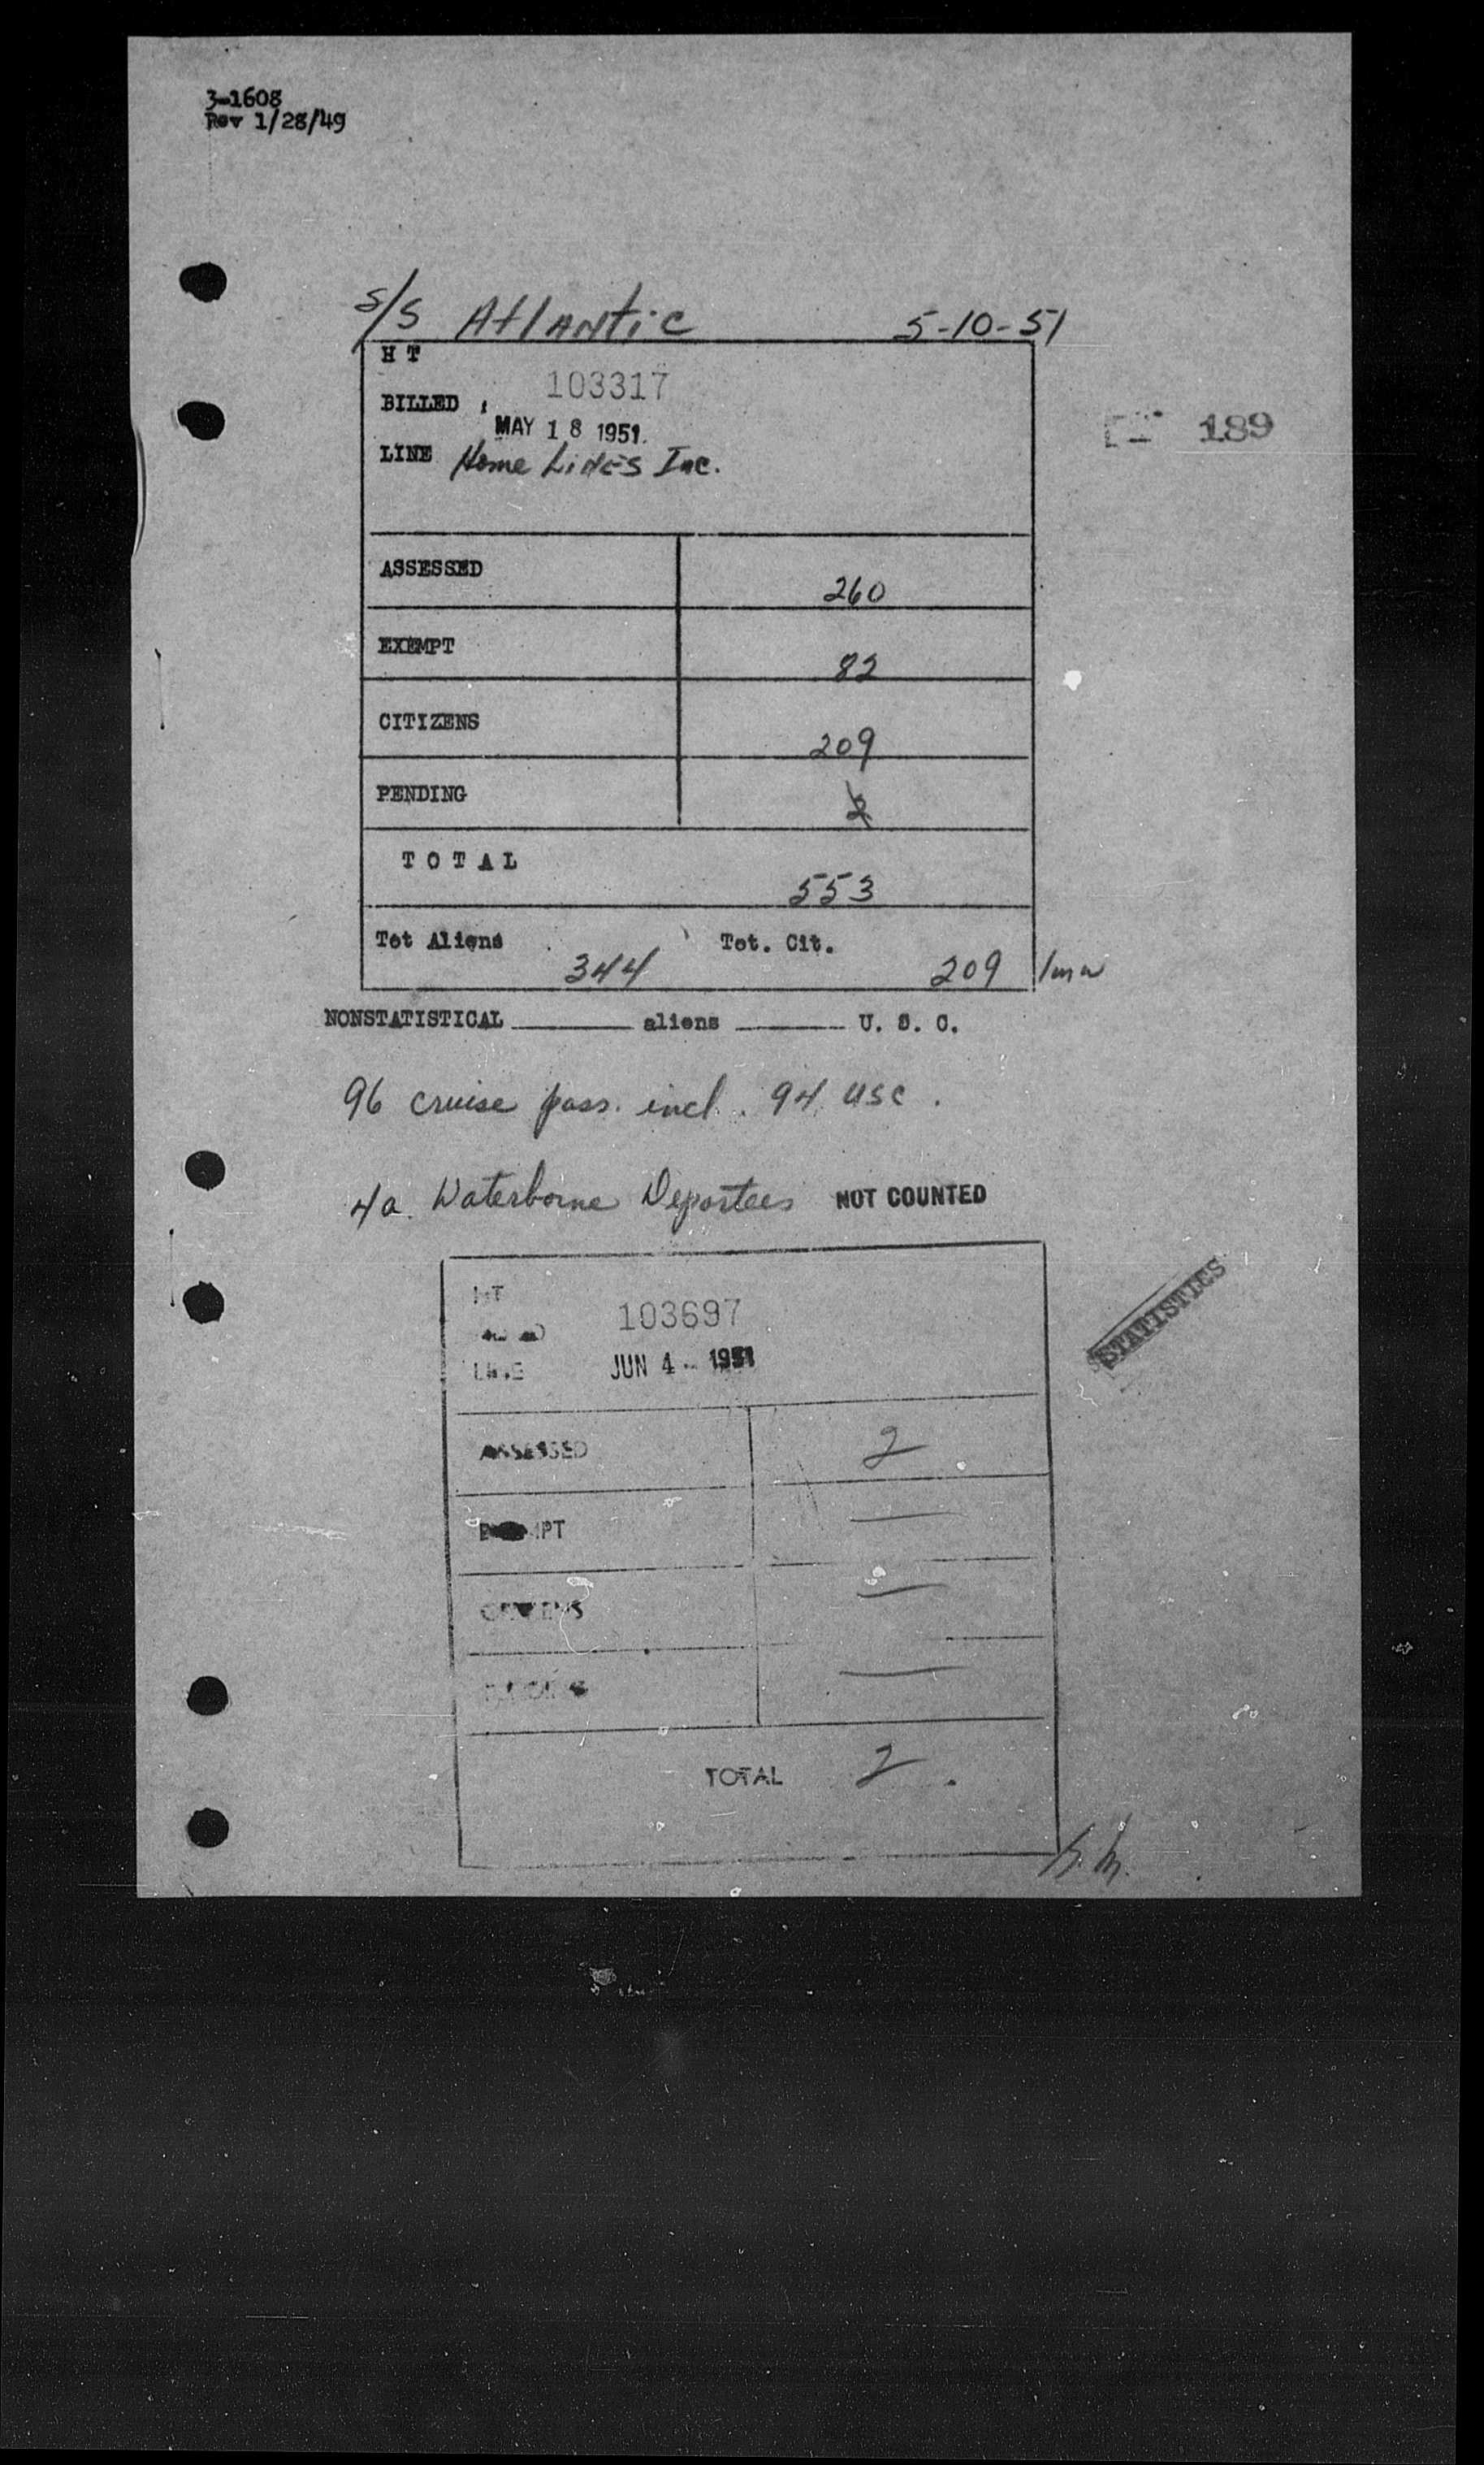 3-1608
Rev 1/28/49
S/S Atlantic 5-10-51
H T
103317
BILLED
MAY 18 1951
LINE Home Lines Inc.
189
ASSESSED 260
EXEMPT 82
CITIZENS 209
PENDING 2
TOTAL 553
Tot Aliens 344 Tot. Cit. 209
NONSTATISTICAL aliens U. S. C.
96 cruise pass. incl. 94 USC.
4a. Waterborne Deportees NOT COUNTED
HT
103697
LINE JUN 4 - 1951
STATISTICS
ASSESSED 2
EXEMPT —
CITIZENS —
—
TOTAL 2.